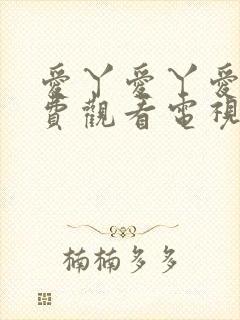 愛丫愛丫愛
費觀看電視
楠楠多多